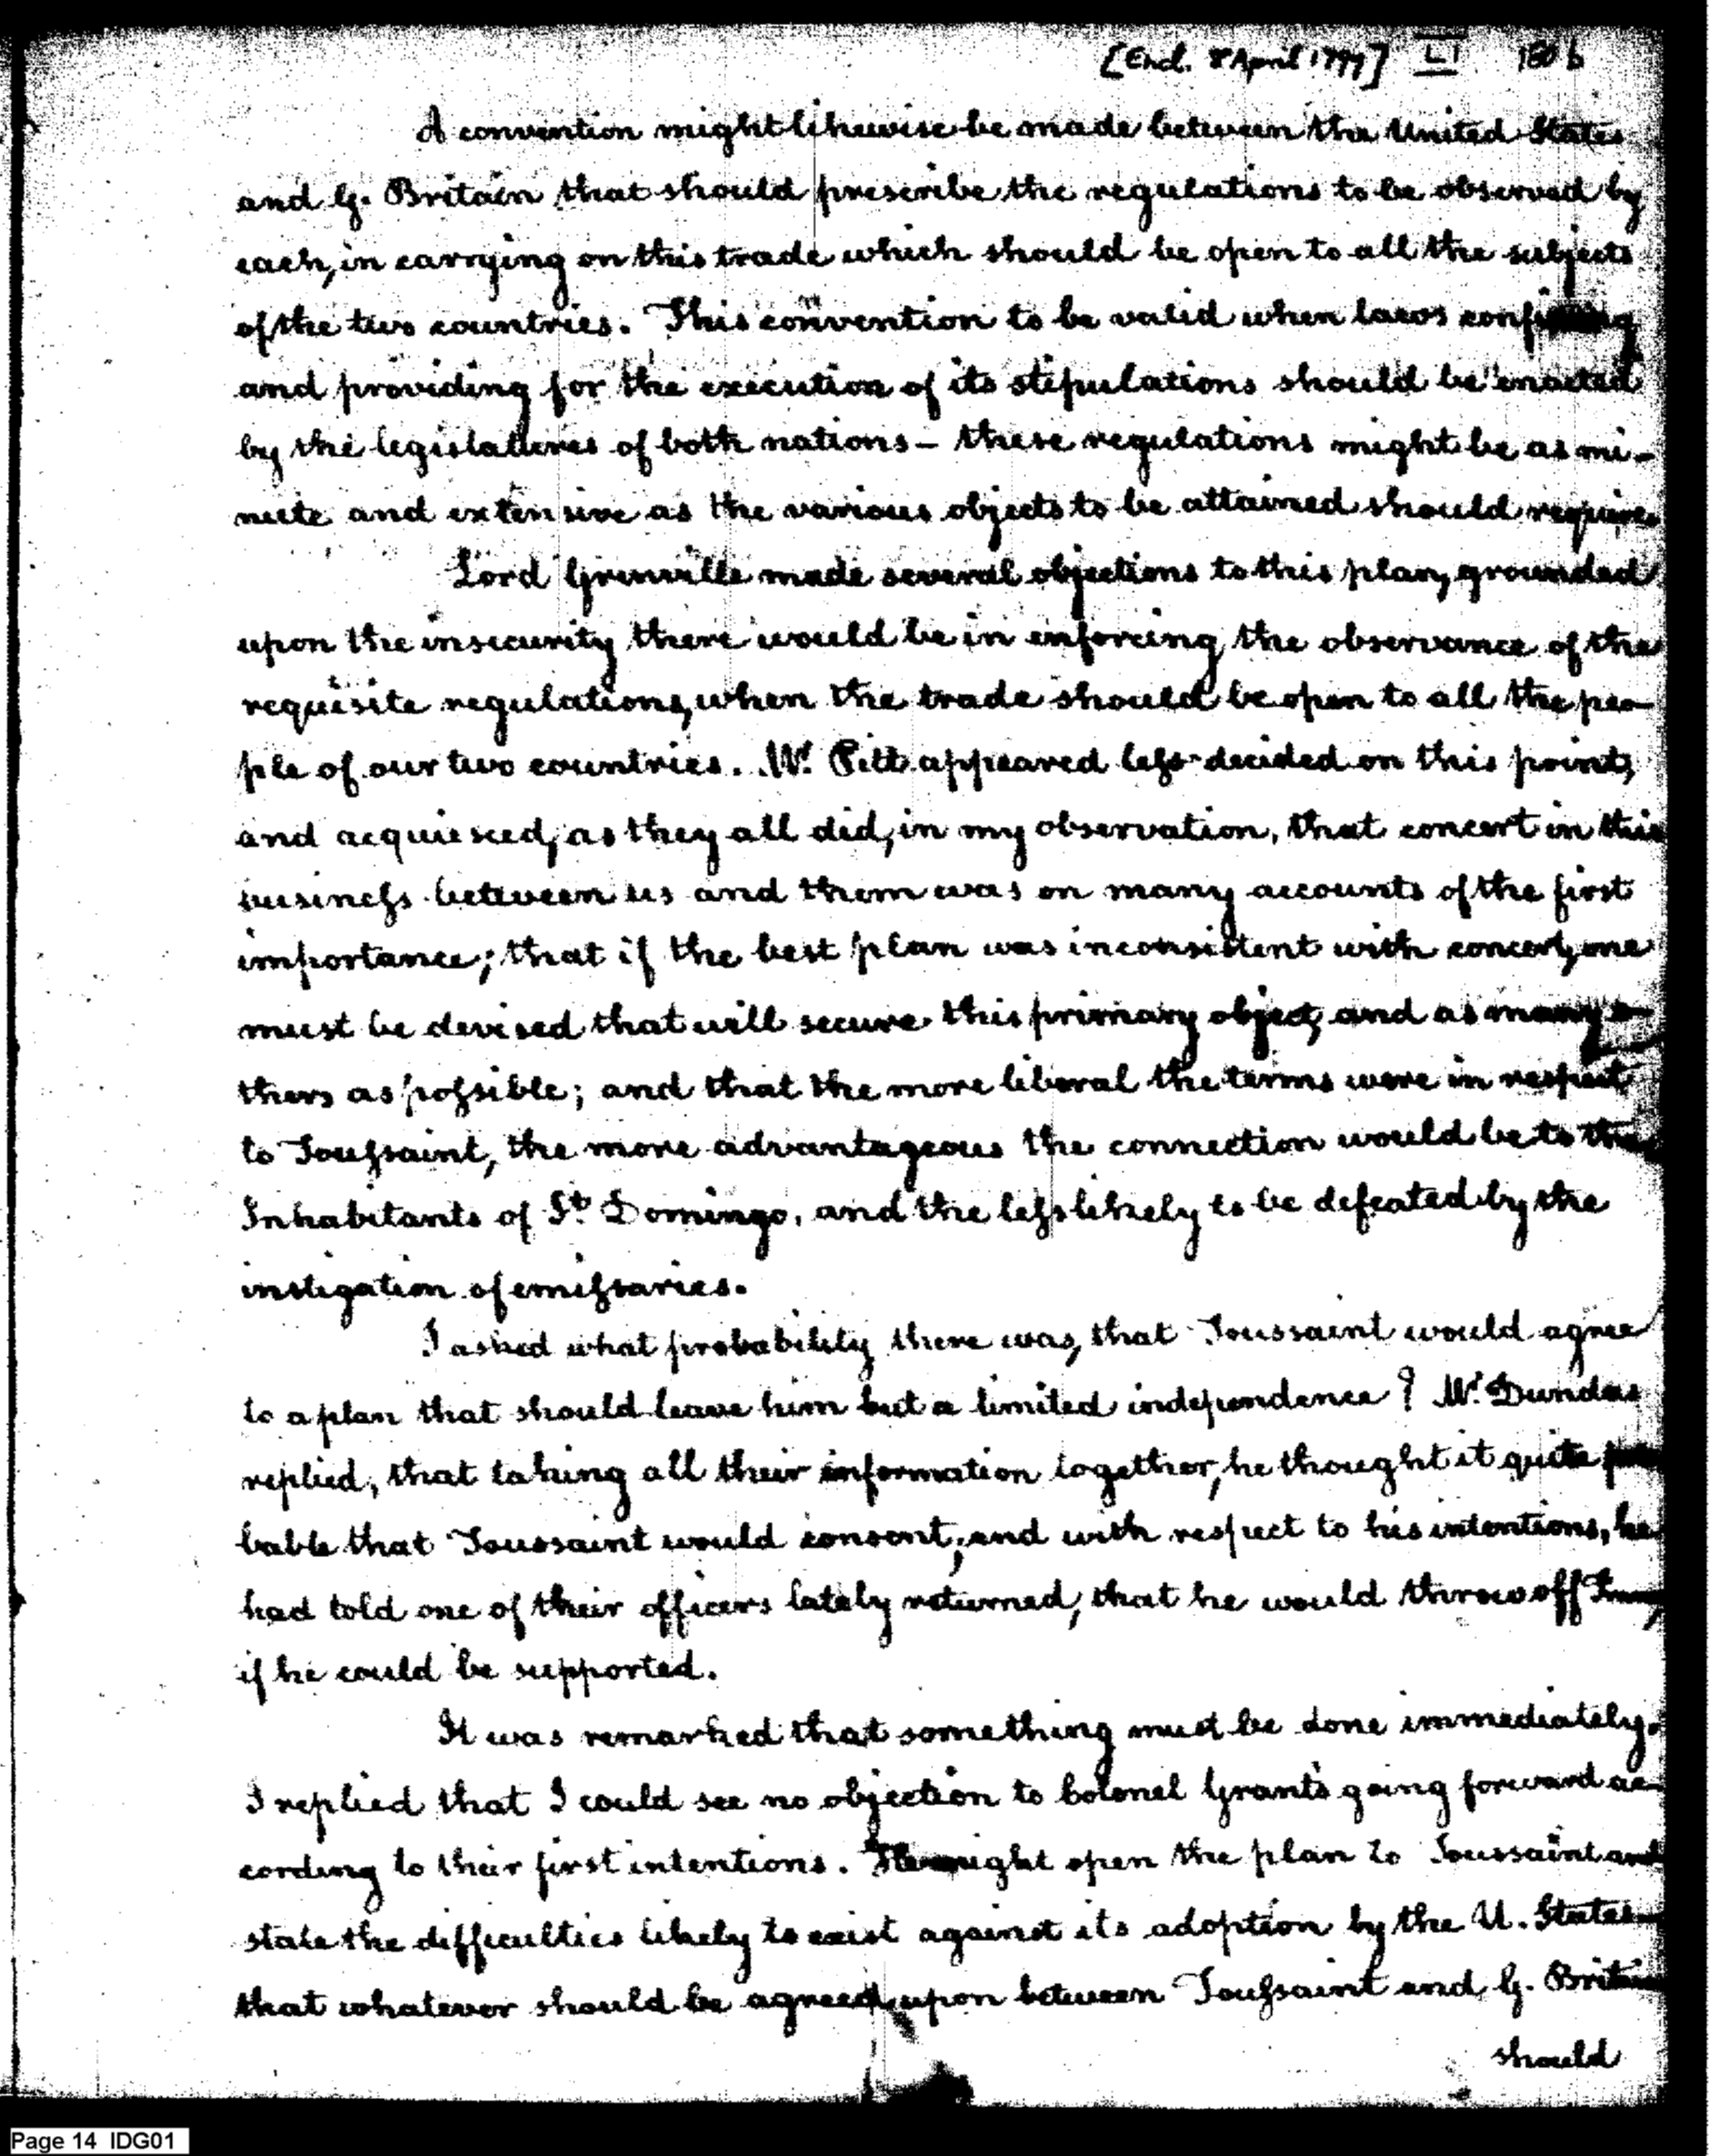 [Encl. 8 April 1799] LI 180 b
A convention might likewise be made between the United States
and G. Britain that should prescribe the regulations to be observed by
each, in carrying on this trade which should be open to all the subjects
of the two countries. This convention to be valid when laws
and providing for the execution of its stipulations should be enacted
by the legislatures of both nations – these regulations might be as mi-
nute and extensive as the various objects to be attained should require.
Lord Grenville made several objections to this plan, grounded
upon the insecurity there would be in enforcing the observance of the
requisite regulations, when the trade should be open to all the peo-
ple of our two countries. Mr. Pitt appeared less decided on this point,
and acquiesced, as they all did, in my observation, that concert in this
business between us and them was on many accounts of the first
importance; that if the best plan was inconsistent with concert, one
must be devised that will secure this primary object, and as many o-
thers as possible; and that the more liberal the terms were in respect
to Toussaint, the more advantageous the connection would be to the
Inhabitants of St. Domingo, and the less likely to be defeated by the
instigation of emissaries.
I asked what probability there was, that Toussaint would agree
to a plan that should leave him but a limited independence? Mr. Dundas
replied, that taking all their information together, he thought it quite pro
bable that Toussaint would consent; and with respect to his intentions, he
had told one of their officers lately returned, that he would throw off
if he could be supported.
It was remarked that something must be done immediately.
I replied that I could see no objection to Colonel Grant's going forward ac-
cording to their first intentions. He might open the plan to Toussaint and
state the difficulties likely to exist against its adoption by the U. States –
that whatever should be agreed upon between Toussaint and G. Britain
should
Page 14 IDG01